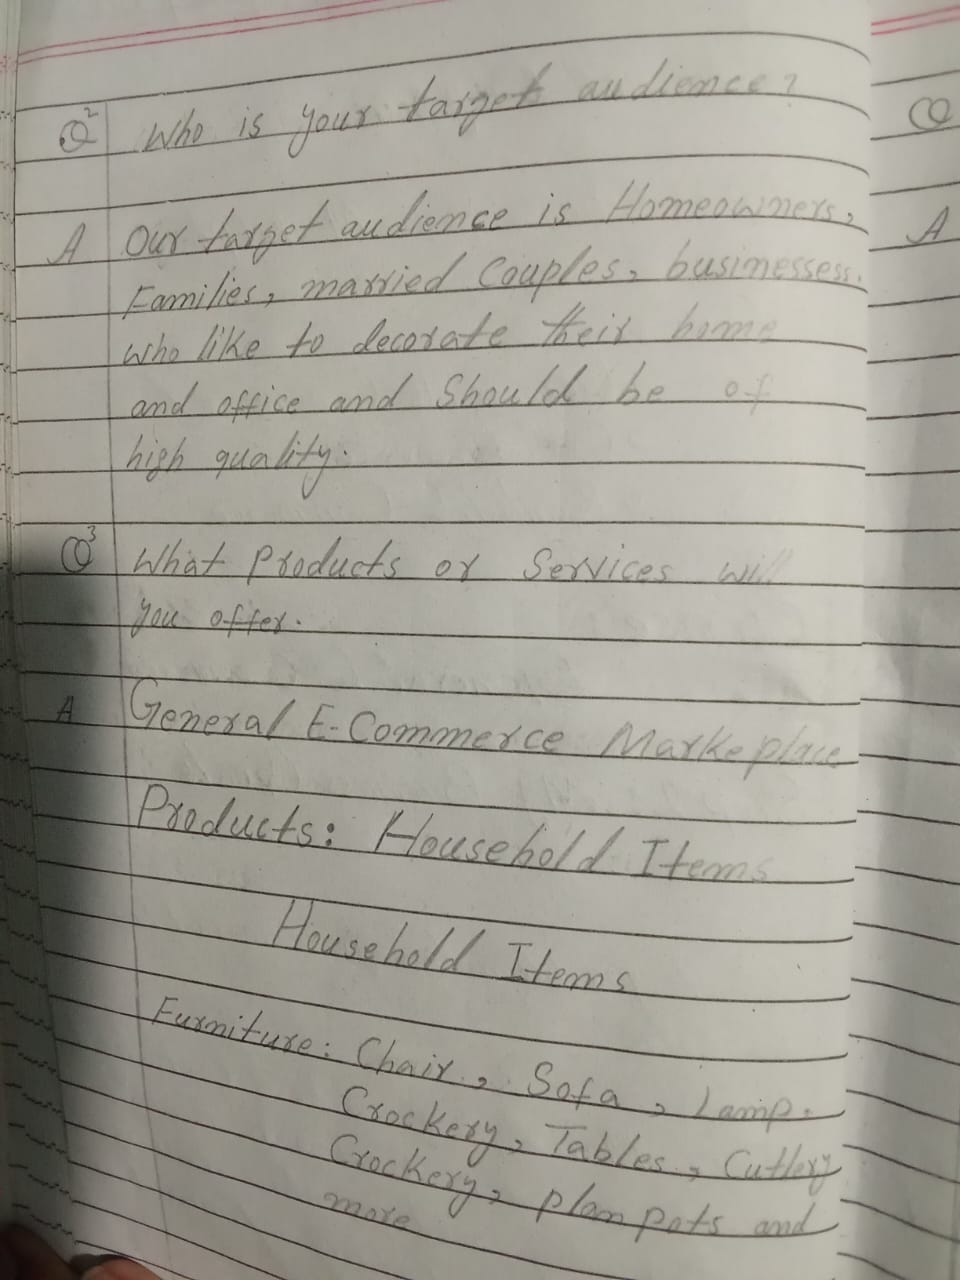 Q2 Who is your target audience?
A Our target audience is Homeowners,
Families, married Couples, businessess.
who like to decorate their home
and office and Should be of
high quality.
Q3 What Products or Services will
you offer.
A General E-Commerce Markeplace
Products: Household Items
Household Items
Furniture: Chair, Sofa, Lamp.
Crockery, Tables, Cutlery
Crockery, plan pots and
more
Q
A